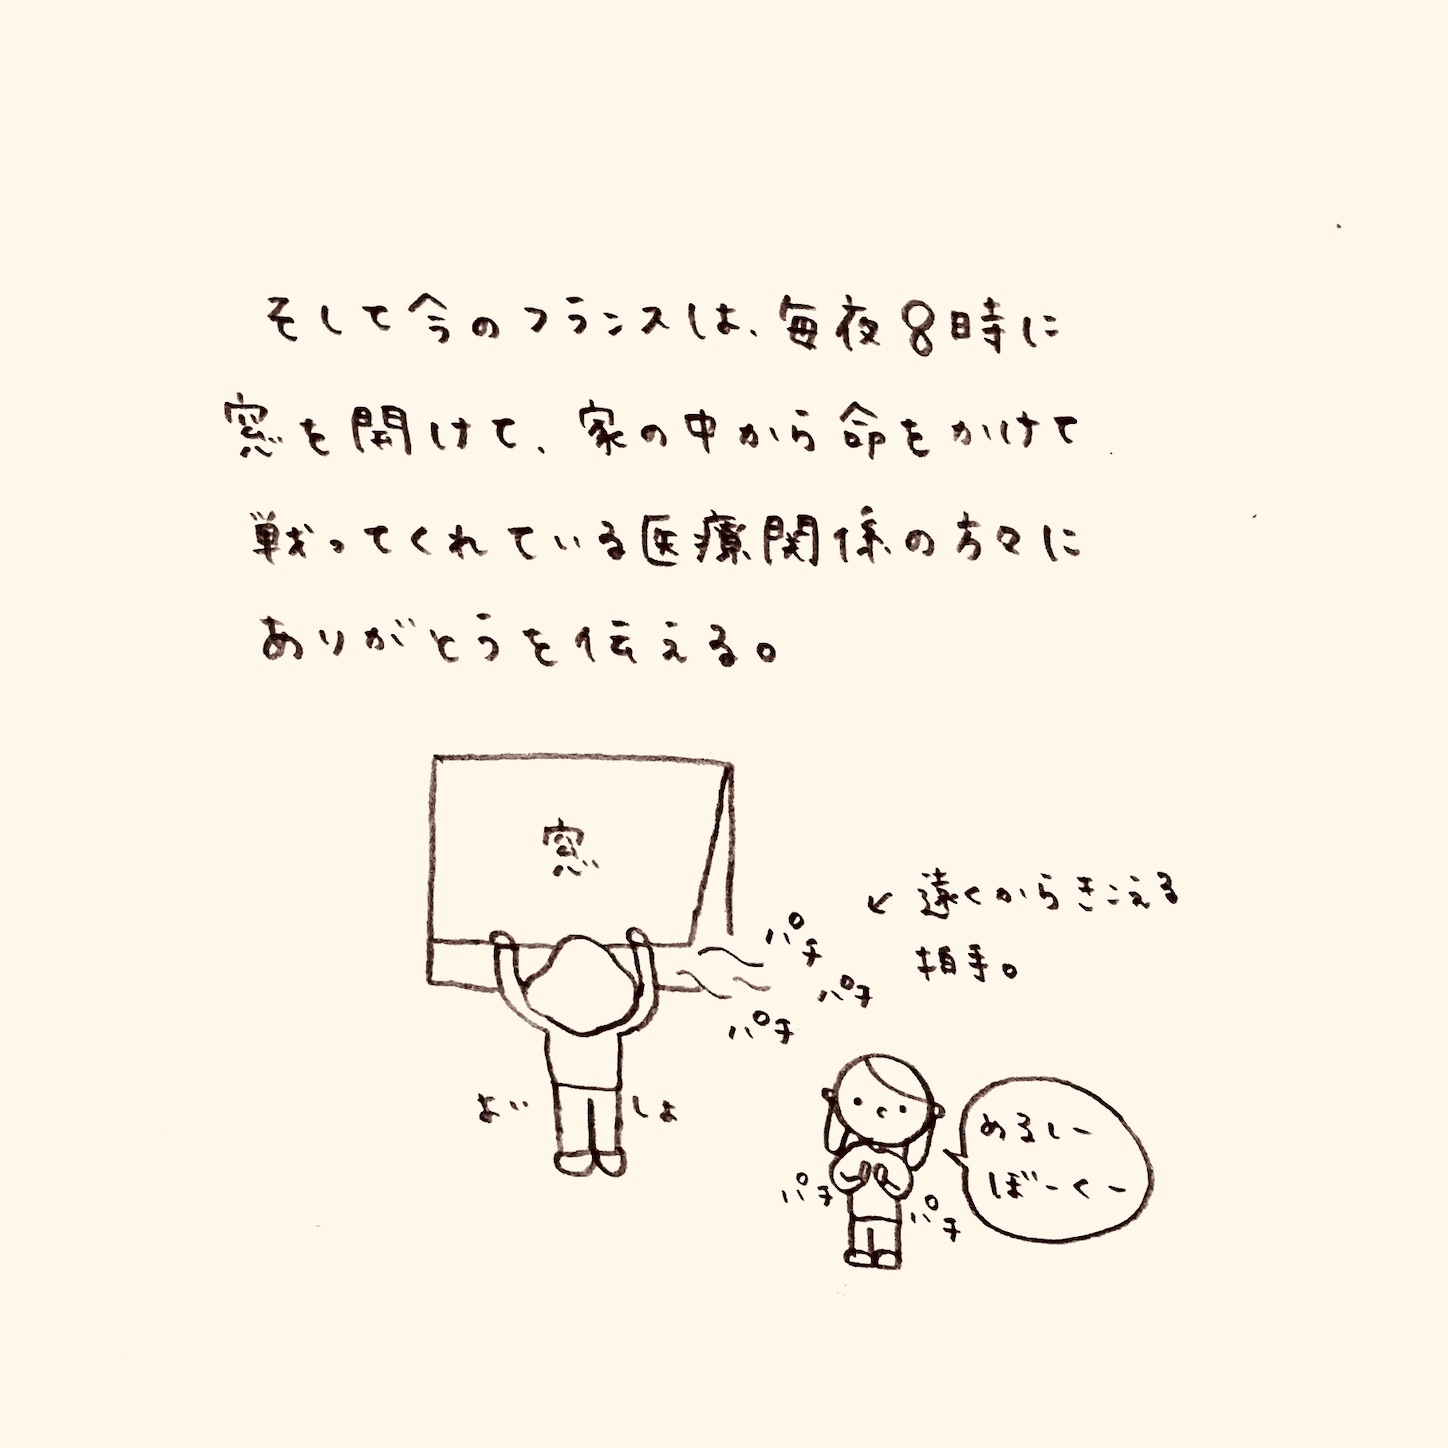 そして今のフランスは、毎夜8時に
窓を開けて、家の中から命をかけて
戦ってくれている医療関係の方々に
ありがとうを伝える。
窓
←遠くからきこえる
拍手。
パチ
パチ
パチ
よい
しょ
めるしー
ぼーくー
パチ
パチ